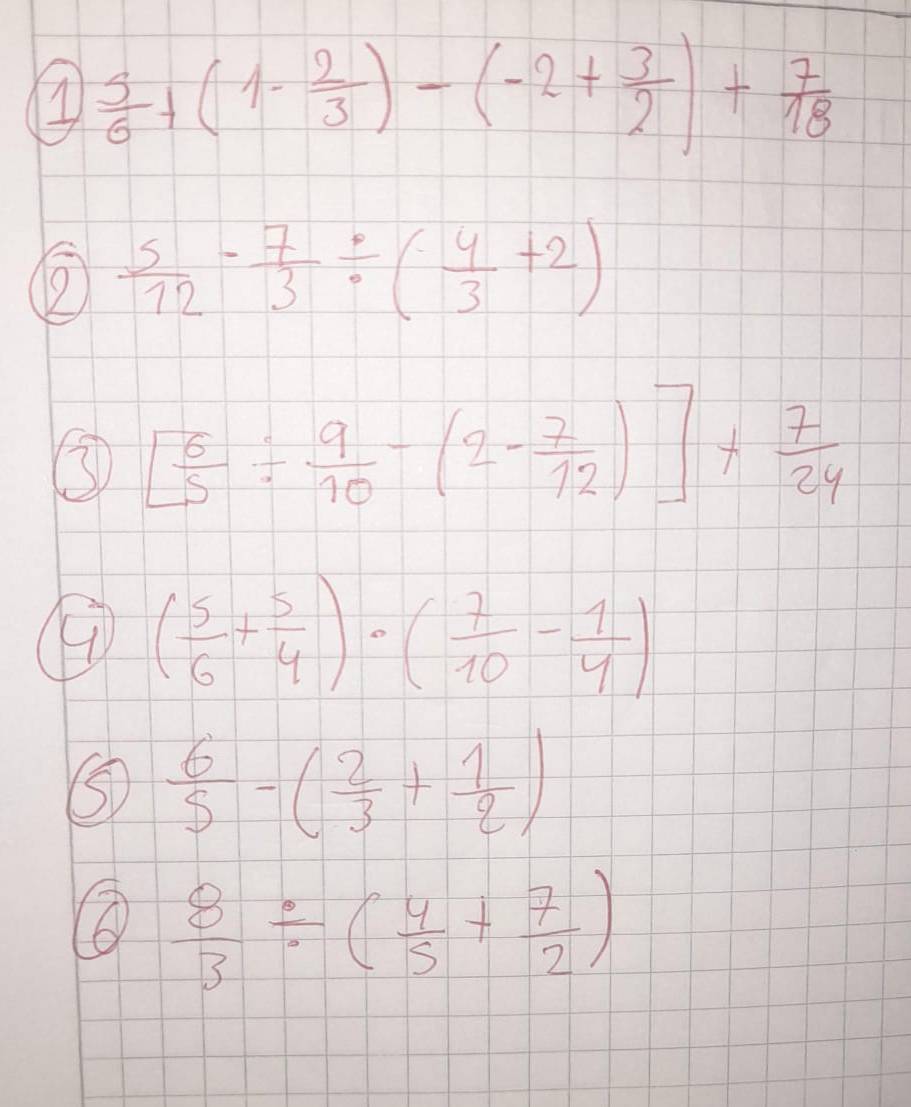 ① 5/6 + (1 - 2/3) - (-2 + 3/2) + 7/18
② 5/12 - 7/3 ÷ (4/3 + 2)
③ [6/5 ÷ 9/10 - (2 - 7/12)] + 7/24
④ (5/6 + 5/4) · (7/10 - 1/4)
⑤ 6/5 - (2/3 + 1/2)
⑥ 8/3 ÷ (4/5 + 7/2)